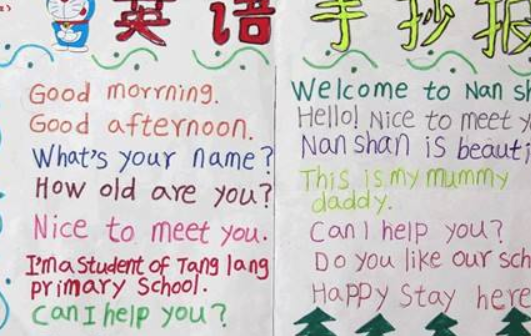 英语 手抄报
Good morrning.
Good afternoon.
What's your name?
How old are you?
Nice to meet you.
I'm a Student of Tang lang
primary School.
Can I help you?
Welcome to Nan sh
Hello! Nice to meet y
Nan shan is beauti
This is my mummy
daddy.
Can I help you?
Do you like our sch
Happy Stay here